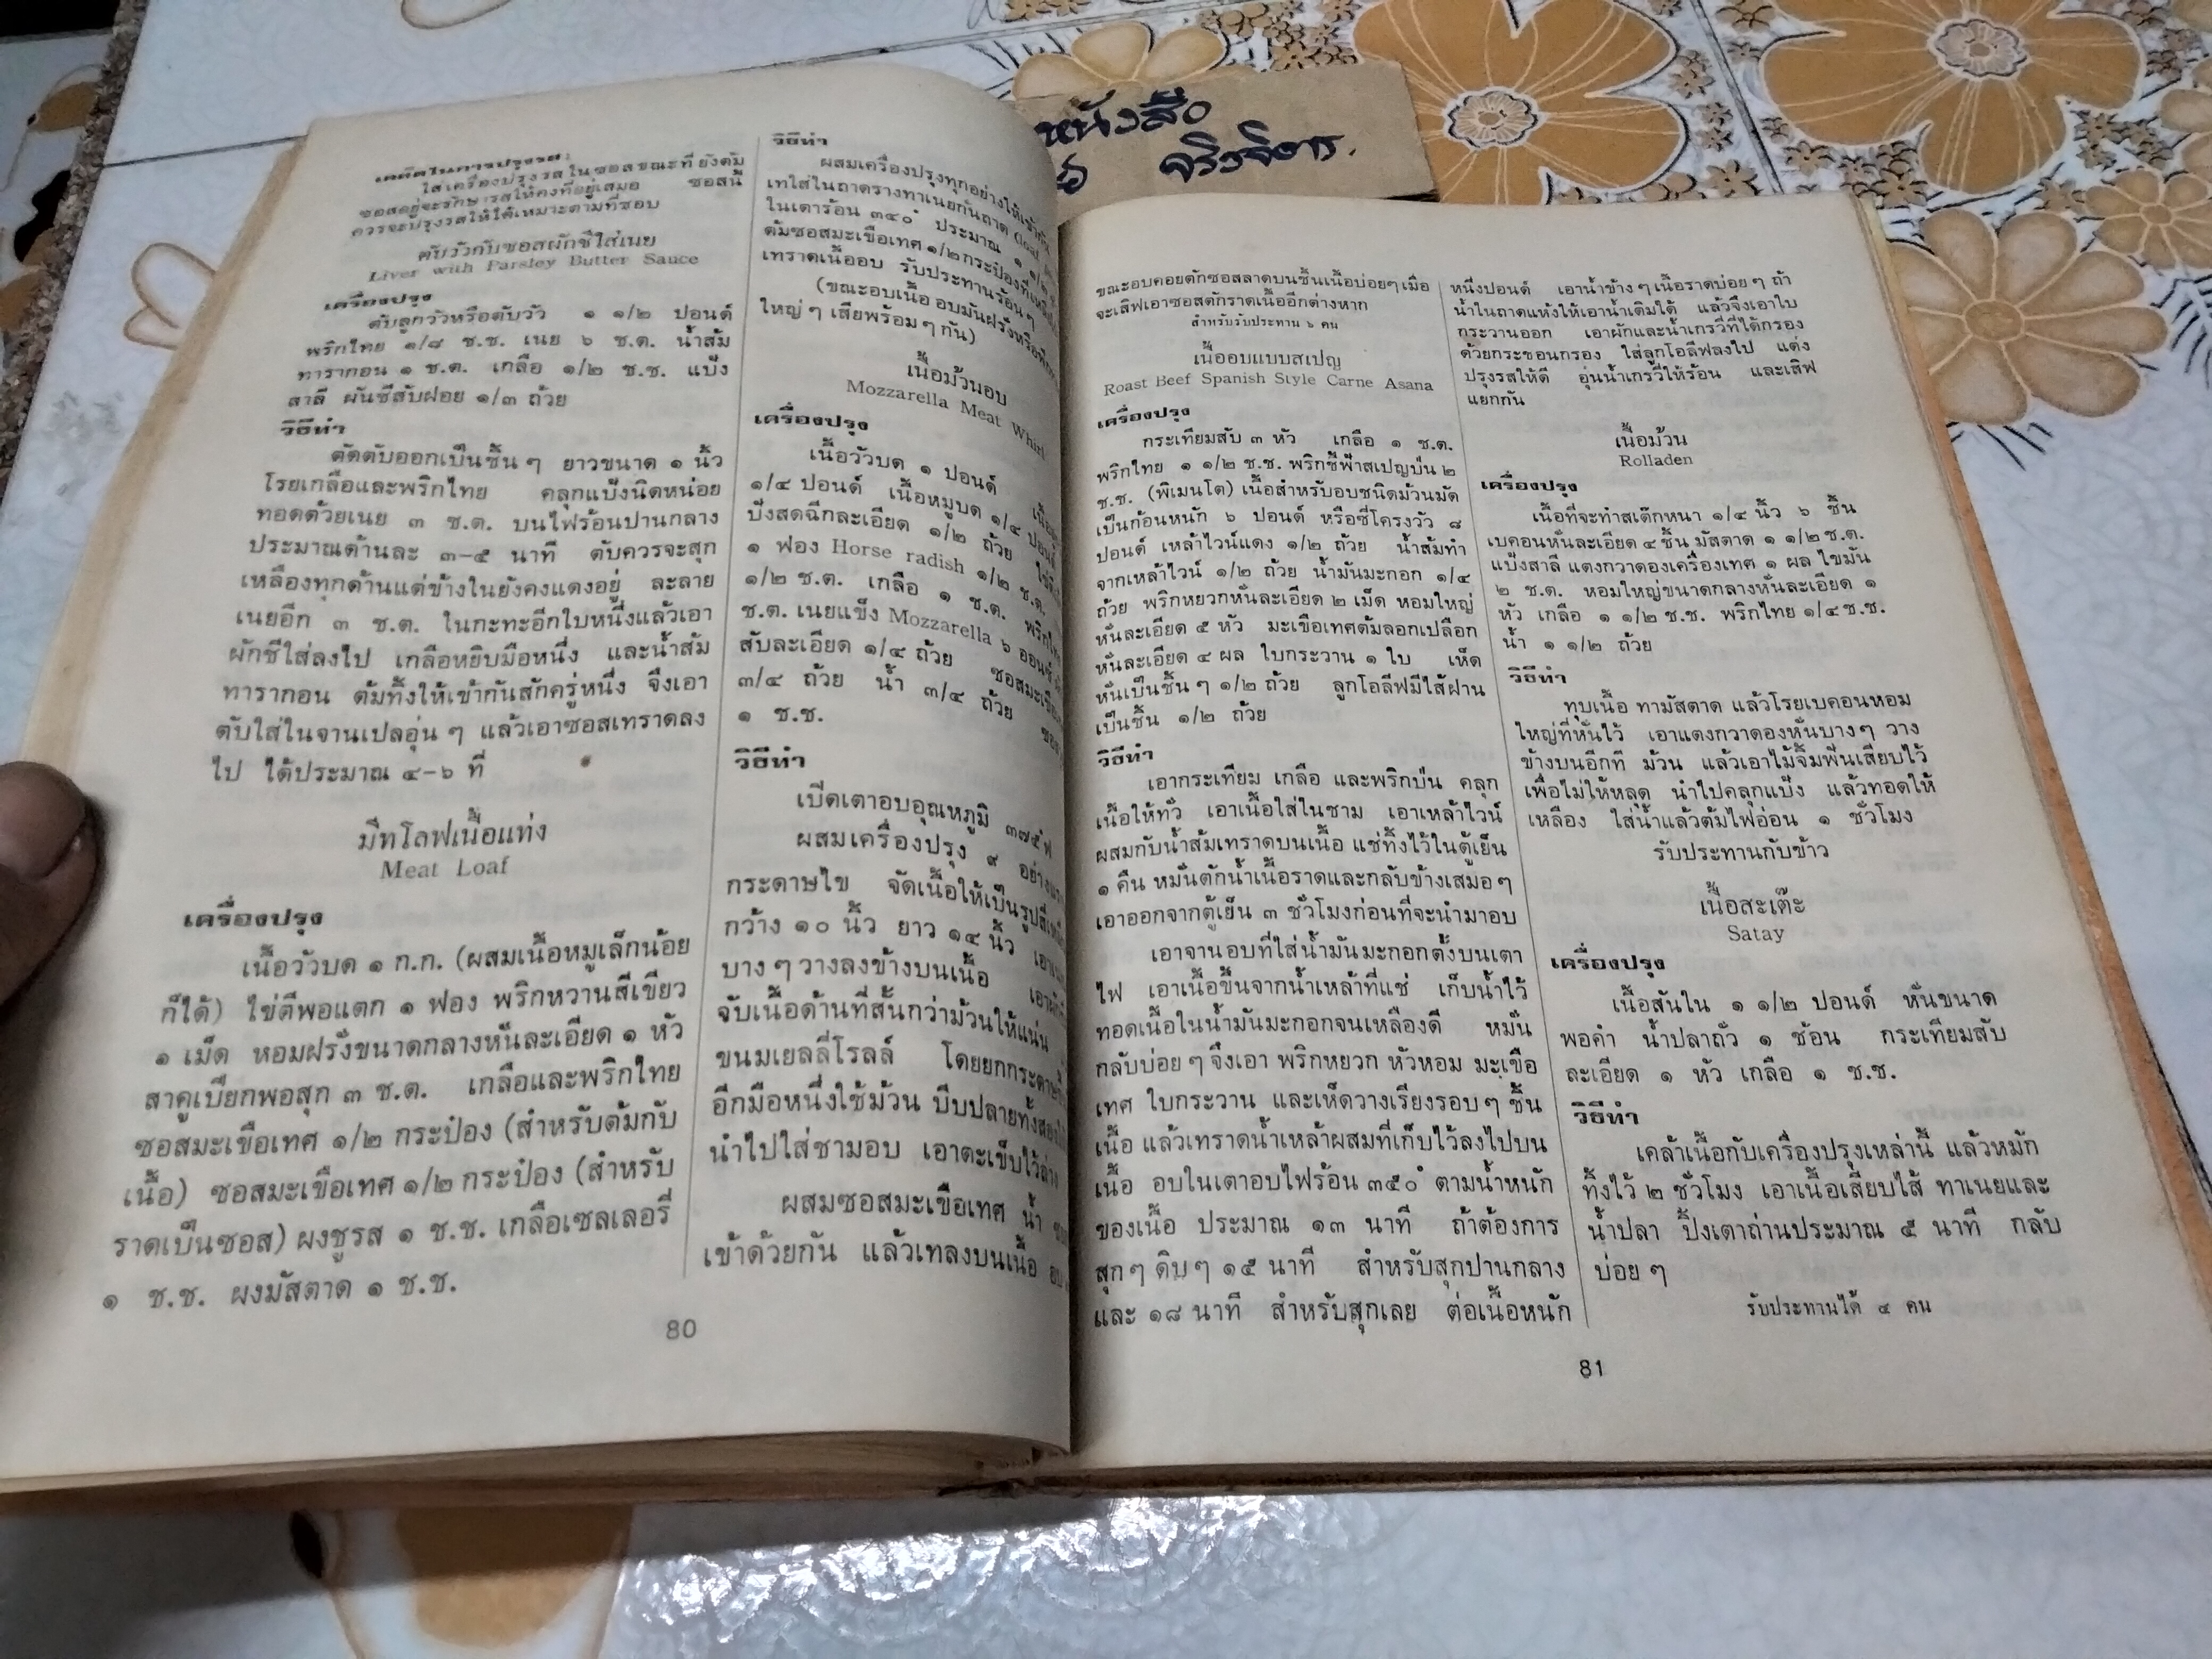 หนังสือ
จริงจิตร.
เคล็ดในการปรุงรส :
ใส่เครื่องปรุงรสในซอสขณะที่ยังต้ม
ซอสอยู่จะรักษารสให้คงที่อยู่เสมอ ซอสนี้
ควรจะปรุงรสให้ได้เหมาะตามที่ชอบ
ตับวัวกับซอสผักชีใส่เนย
Liver with Parsley Butter Sauce
เครื่องปรุง
ตับลูกวัวหรือตับวัว ๑ ๑/๒ ปอนด์
พริกไทย ๑/๘ ช.ช. เนย ๖ ช.ต. น้ำส้ม
ทารากอน ๑ ช.ต. เกลือ ๑/๒ ช.ช. แป้ง
สาลี ผันชีสับฝอย ๑/๓ ถ้วย
วิธีทำ
ตัดตับออกเป็นชิ้นๆ ยาวขนาด ๑ นิ้ว
โรยเกลือและพริกไทย คลุกแป้งนิดหน่อย
ทอดด้วยเนย ๓ ช.ต. บนไฟร้อนปานกลาง
ประมาณด้านละ ๓-๕ นาที ตับควรจะสุก
เหลืองทุกด้านแต่ข้างในยังคงแดงอยู่ ละลาย
เนยอีก ๓ ช.ต. ในกะทะอีกใบหนึ่งแล้วเอา
ผักชีใส่ลงไป เกลือหยิบมือหนึ่ง และน้ำส้ม
ทารากอน ต้มทิ้งให้เข้ากันสักครู่หนึ่ง จึงเอา
ตับใส่ในจานเปลอุ่นๆ แล้วเอาซอสเทราดลง
ไป ได้ประมาณ ๔-๖ ที่
มีทโลฟเนื้อแท่ง
Meat Loaf
เครื่องปรุง
เนื้อวัวบด ๑ ก.ก. (ผสมเนื้อหมูเล็กน้อย
ก็ได้) ไข่ตีพอแตก ๑ ฟอง พริกหวานสีเขียว
๑ เม็ด หอมฝรั่งขนาดกลางหั่นละเอียด ๑ หัว
สาคูเปียกพอสุก ๓ ช.ต. เกลือและพริกไทย
ซอสมะเขือเทศ ๑/๒ กระป๋อง (สำหรับต้มกับ
เนื้อ) ซอสมะเขือเทศ ๑/๒ กระป๋อง (สำหรับ
ราดเป็นซอส) ผงชูรส ๑ ช.ช. เกลือเซลเลอรี่
๑ ช.ช. ผงมัสตาด ๑ ช.ช.
วิธีทำ
ผสมเครื่องปรุงทุกอย่างให้เข้ากัน
เทใส่ในถาดรางทาเนยก้นถาด (loaf
ในเตาร้อน ๓๔๐° ประมาณ ๑ ๑/๒
ต้มซอสมะเขือเทศ ๑/๒ กระป๋องที่เหลือ
เทราดเนื้ออบ รับประทานร้อนๆ
(ขณะอบเนื้อ อบมันฝรั่งหรือ
ใหญ่ๆ เสียพร้อมๆ กัน)
เนื้อม้วนอบ
Mozzarella Meat Whirl
เครื่องปรุง
เนื้อวัวบด ๑ ปอนด์
๑/๔ ปอนด์ เนื้อหมูบด ๑/๔ ปอนด์
ปังสดฉีกละเอียด ๑/๒ ถ้วย
๑ ฟอง Horse radish ๑/๒ ช.ต.
๑/๒ ช.ต. เกลือ ๑ ช.ต.
ช.ต. เนยแข็ง Mozzarella ๖ ออนซ์
สับละเอียด ๑/๔ ถ้วย
๓/๔ ถ้วย น้ำ ๓/๔ ถ้วย
๑ ช.ช.
วิธีทำ
เปิดเตาอบอุณหภูมิ ๓๗๕°ฟ
ผสมเครื่องปรุง ๙ อย่าง
กระดาษไข จัดเนื้อให้เป็นรูปสี่เหลี่ยม
กว้าง ๑๐ นิ้ว ยาว ๑๔ นิ้ว
บางๆ วางลงข้างบนเนื้อ
จับเนื้อด้านที่สั้นกว่าม้วนให้แน่น
ขนมเยลลี่โรลล์ โดยยกกระดาษ
อีกมือหนึ่งใช้ม้วน บีบปลายทั้งสอง
นำไปใส่ชามอบ เอาตะเข็บไว้ล่าง
ผสมซอสมะเขือเทศ น้ำ
เข้าด้วยกัน แล้วเทลงบนเนื้อ
80
ขณะอบคอยตักซอสลาดบนชิ้นเนื้อบ่อยๆ เมื่อ
จะเสิฟเอาซอสตักราดเนื้ออีกต่างหาก
สำหรับรับประทาน ๖ คน
เนื้ออบแบบสเปญ
Roast Beef Spanish Style Carne Asana
เครื่องปรุง
กระเทียมสับ ๓ หัว เกลือ ๑ ช.ต.
พริกไทย ๑ ๑/๒ ช.ช. พริกชี้ฟ้าสเปญป่น ๒
ช.ช. (พิเมนโต) เนื้อสำหรับอบชนิดม้วนมัด
เป็นก้อนหนัก ๖ ปอนด์ หรือซี่โครงวัว ๘
ปอนด์ เหล้าไวน์แดง ๑/๒ ถ้วย น้ำส้มทำ
จากเหล้าไวน์ ๑/๒ ถ้วย น้ำมันมะกอก ๑/๔
ถ้วย พริกหยวกหั่นละเอียด ๒ เม็ด หอมใหญ่
หั่นละเอียด ๕ หัว มะเขือเทศต้มลอกเปลือก
หั่นละเอียด ๔ ผล ใบกระวาน ๑ ใบ เห็ด
หั่นเป็นชิ้นๆ ๑/๒ ถ้วย ลูกโอลีฟมีไส้ฝาน
เป็นชิ้น ๑/๒ ถ้วย
วิธีทำ
เอากระเทียม เกลือ และพริกป่น คลุก
เนื้อให้ทั่ว เอาเนื้อใส่ในชาม เอาเหล้าไวน์
ผสมกับน้ำส้มเทราดบนเนื้อ แช่ทิ้งไว้ในตู้เย็น
๑ คืน หมั่นตักน้ำเนื้อราดและกลับข้างเสมอๆ
เอาออกจากตู้เย็น ๓ ชั่วโมงก่อนที่จะนำมาอบ
เอาจานอบที่ใส่น้ำมันมะกอกตั้งบนเตา
ไฟ เอาเนื้อขึ้นจากน้ำเหล้าที่แช่ เก็บน้ำไว้
ทอดเนื้อในน้ำมันมะกอกจนเหลืองดี หมั่น
กลับบ่อยๆ จึงเอา พริกหยวก หัวหอม มะเขือ
เทศ ใบกระวาน และเห็ดวางเรียงรอบๆ ชิ้น
เนื้อ แล้วเทราดน้ำเหล้าผสมที่เก็บไว้ลงไปบน
เนื้อ อบในเตาอบไฟร้อน ๓๕๐° ตามน้ำหนัก
ของเนื้อ ประมาณ ๑๓ นาที ถ้าต้องการ
สุกๆ ดิบๆ ๑๕ นาที สำหรับสุกปานกลาง
และ ๑๘ นาที สำหรับสุกเลย ต่อเนื้อหนัก
หนึ่งปอนด์ เอาน้ำข้างๆ เนื้อราดบ่อยๆ ถ้า
น้ำในถาดแห้งให้เอาน้ำเติมได้ แล้วจึงเอาใบ
กระวานออก เอาผักและน้ำเกรวี่ที่ได้กรอง
ด้วยกระชอนกรอง ใส่ลูกโอลีฟลงไป แต่ง
ปรุงรสให้ดี อุ่นน้ำเกรวี่ให้ร้อน และเสิฟ
แยกกัน
เนื้อม้วน
Rolladen
เครื่องปรุง
เนื้อที่จะทำสเต๊กหนา ๑/๔ นิ้ว ๖ ชิ้น
เบคอนหั่นละเอียด ๔ ชิ้น มัสตาด ๑ ๑/๒ ช.ต.
แป้งสาลี แตงกวาดองเครื่องเทศ ๑ ผล ไขมัน
๒ ช.ต. หอมใหญ่ขนาดกลางหั่นละเอียด ๑
หัว เกลือ ๑ ๑/๒ ช.ช. พริกไทย ๑/๔ ช.ช.
น้ำ ๑ ๑/๒ ถ้วย
วิธีทำ
ทุบเนื้อ ทามัสตาด แล้วโรยเบคอนหอม
ใหญ่ที่หั่นไว้ เอาแตงกวาดองหั่นบางๆ วาง
ข้างบนอีกที ม้วน แล้วเอาไม้จิ้มฟันเสียบไว้
เพื่อไม่ให้หลุด นำไปคลุกแป้ง แล้วทอดให้
เหลือง ใส่น้ำแล้วต้มไฟอ่อน ๑ ชั่วโมง
รับประทานกับข้าว
เนื้อสะเต๊ะ
Satay
เครื่องปรุง
เนื้อสันใน ๑ ๑/๒ ปอนด์ หั่นขนาด
พอคำ น้ำปลาถั่ว ๑ ช้อน กระเทียมสับ
ละเอียด ๑ หัว เกลือ ๑ ช.ช.
วิธีทำ
เคล้าเนื้อกับเครื่องปรุงเหล่านี้ แล้วหมัก
ทิ้งไว้ ๒ ชั่วโมง เอาเนื้อเสียบไส้ ทาเนยและ
น้ำปลา ปิ้งเตาถ่านประมาณ ๕ นาที กลับ
บ่อยๆ
รับประทานได้ ๔ คน
81